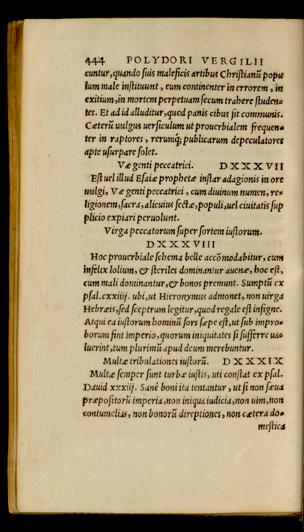 444 POLYDORI VERGILII
cuntur, quando suis maleficis artibus Christianũ popu
lum male instituunt, eum continenter in errorem, in
exitium, in mortem perpetuam secum trahere studen=
tes. Et ad id alluditur, quod panis cibus sit communis.
Cæterũ uulgus uersiculum ut prouerbialem frequen=
ter in raptores, rerumq́; publicarum depeculatores
apte usurpare solet.
Væ genti peccatrici. DXXXVII
Est uel illud Esaiæ prophetæ instar adagionis in ore
uulgi, Væ genti peccatrici, cum diuinum numen, re=
ligionem, sacra, alicuius sectæ, populi, uel ciuitatis sup
plicio expiari peruolunt.
Virga peccatorum super sortem iustorum.
DXXXVIII
Hoc prouerbiale schema belle accõmodabitur, cum
infelix lolium, & steriles dominantur auenæ, hoc est,
cum mali dominantur, & bonos premunt. Sumptũ ex
psal. cxxiiij. ubi, ut Hieronymus admonet, non uirga
Hebræis, sed sceptrum legitur, quod regale est insigne.
Atqui ea iustorum hominũ sors sæpe est, ut sub impro=
borum sint imperio, quorum iniquitates si sufferre ua=
luerint, tum plurimũ apud deum merebuntur.
Multæ tribulationes iustorũ. DXXXIX
Multæ semper sunt turbæ iustis, uti constat ex psal.
Dauid xxxiij. Sanè boni ita tentantur, ut si non sæua
præpositorũ imperia, non iniqua iudicia, non uim, non
contumelias, non bonorũ direptiones, non cætera do=
mestica